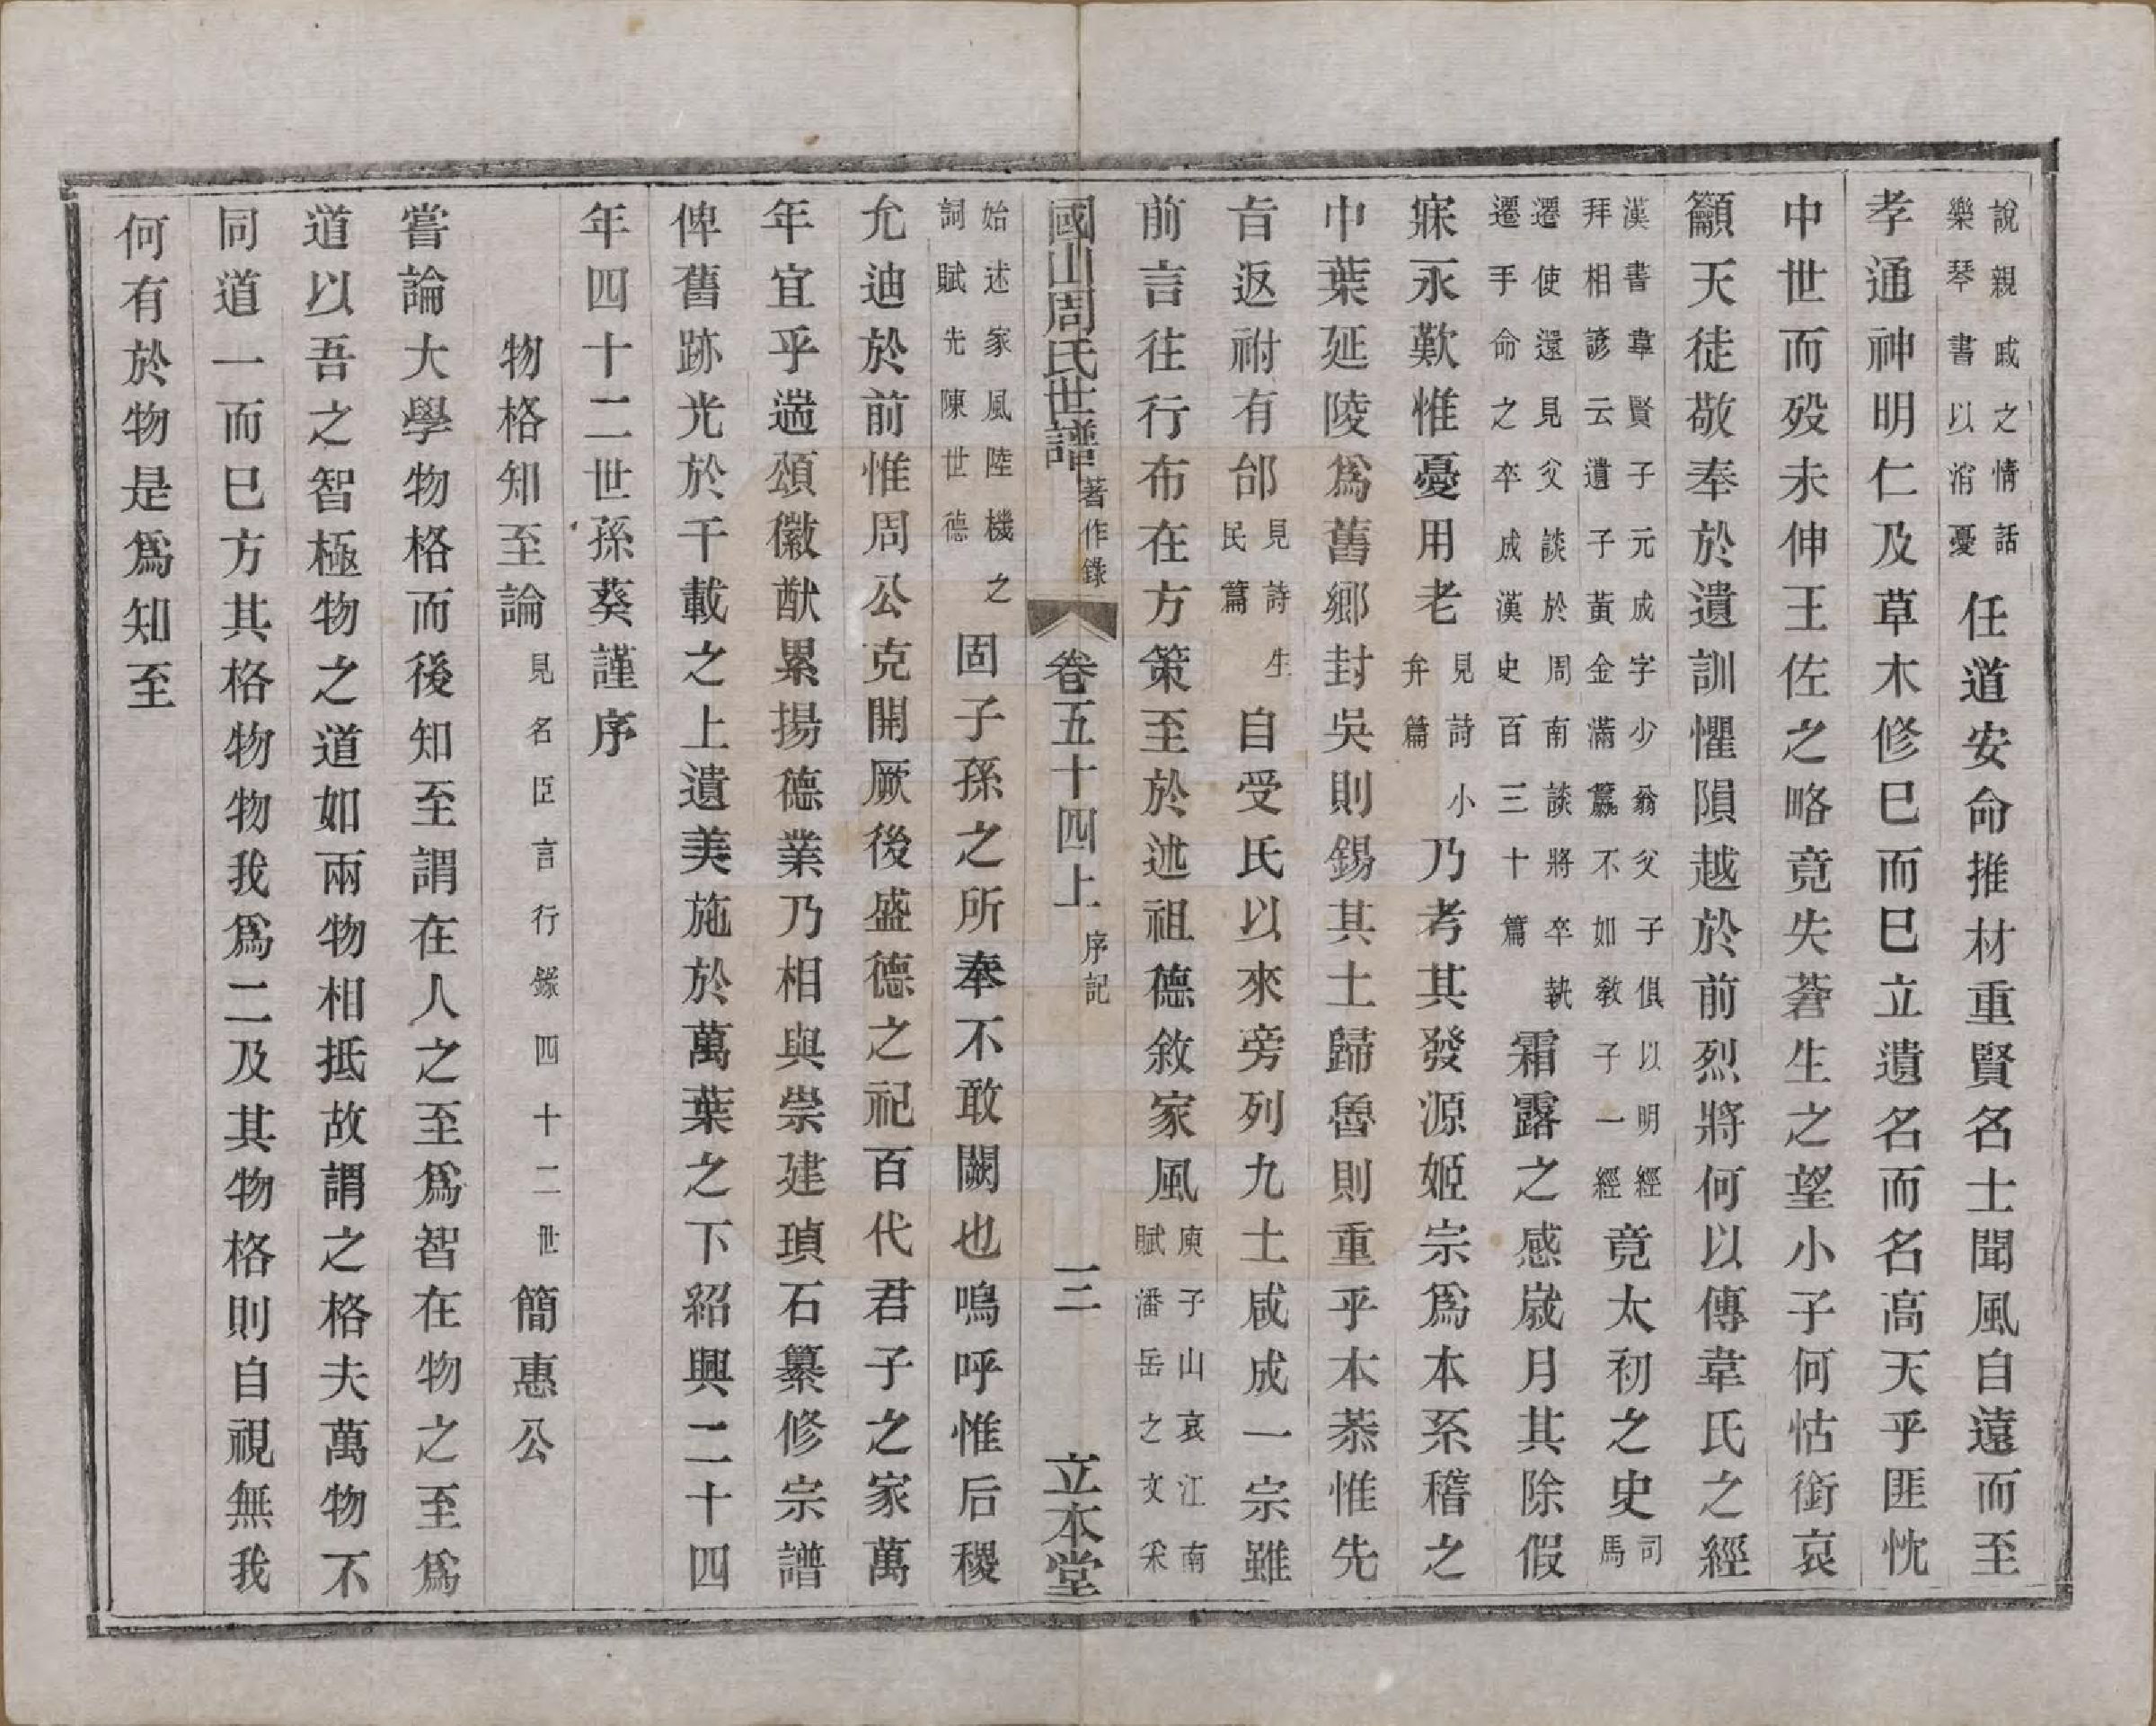 說親戚之情話樂琴書以消憂任道安命推材重賢名士聞風自遠而至
孝通神明仁及草木修巳而巳立遺名而名高天乎匪忱
中世而殁未伸王佐之略竟失蒼生之望小子何怙銜哀
籲天徒敬奉於遺訓懼隕越於前烈將何以傳韋氏之經
漢書韋賢子元成字少翁父子俱以明經拜相諺云遺子黃金滿籯不如敎子一經竟太初之史司馬
遷使還見父談於周南談將卒執遷手命之卒成漢史百三十篇霜露之感歲月其除假
寐永歎惟憂用老見詩小弁篇乃考其發源姬宗爲本系稽之
中葉延陵爲舊鄉封吳則錫其土歸魯則重乎本恭惟先
旨返祔有邰見詩生民篇自受氏以來旁列九土咸成一宗雖
前言往行布在方策至於述祖德敘家風庾子山哀江南賦潘岳之文采
國山周氏世譜著作錄 卷五十四上序記 三 立本堂
始述家風陸機之詞賦先陳世德固子孫之所奉不敢闕也嗚呼惟后稷
允迪於前惟周公克開厥後盛德之祀百代君子之家萬
年宜乎遄頌徽猷累揚德業乃相與崇建瑱石纂修宗譜
俾舊跡光於千載之上遺美施於萬葉之下紹興二十四
年四十二世孫葵謹序
物格知至論見名臣言行錄四十二世簡惠公
嘗論大學物格而後知至謂在人之至爲智在物之至爲
道以吾之智極物之道如兩物相抵故謂之格夫萬物不
同道一而巳方其格物物我爲二及其物格則自視無我
何有於物是爲知至